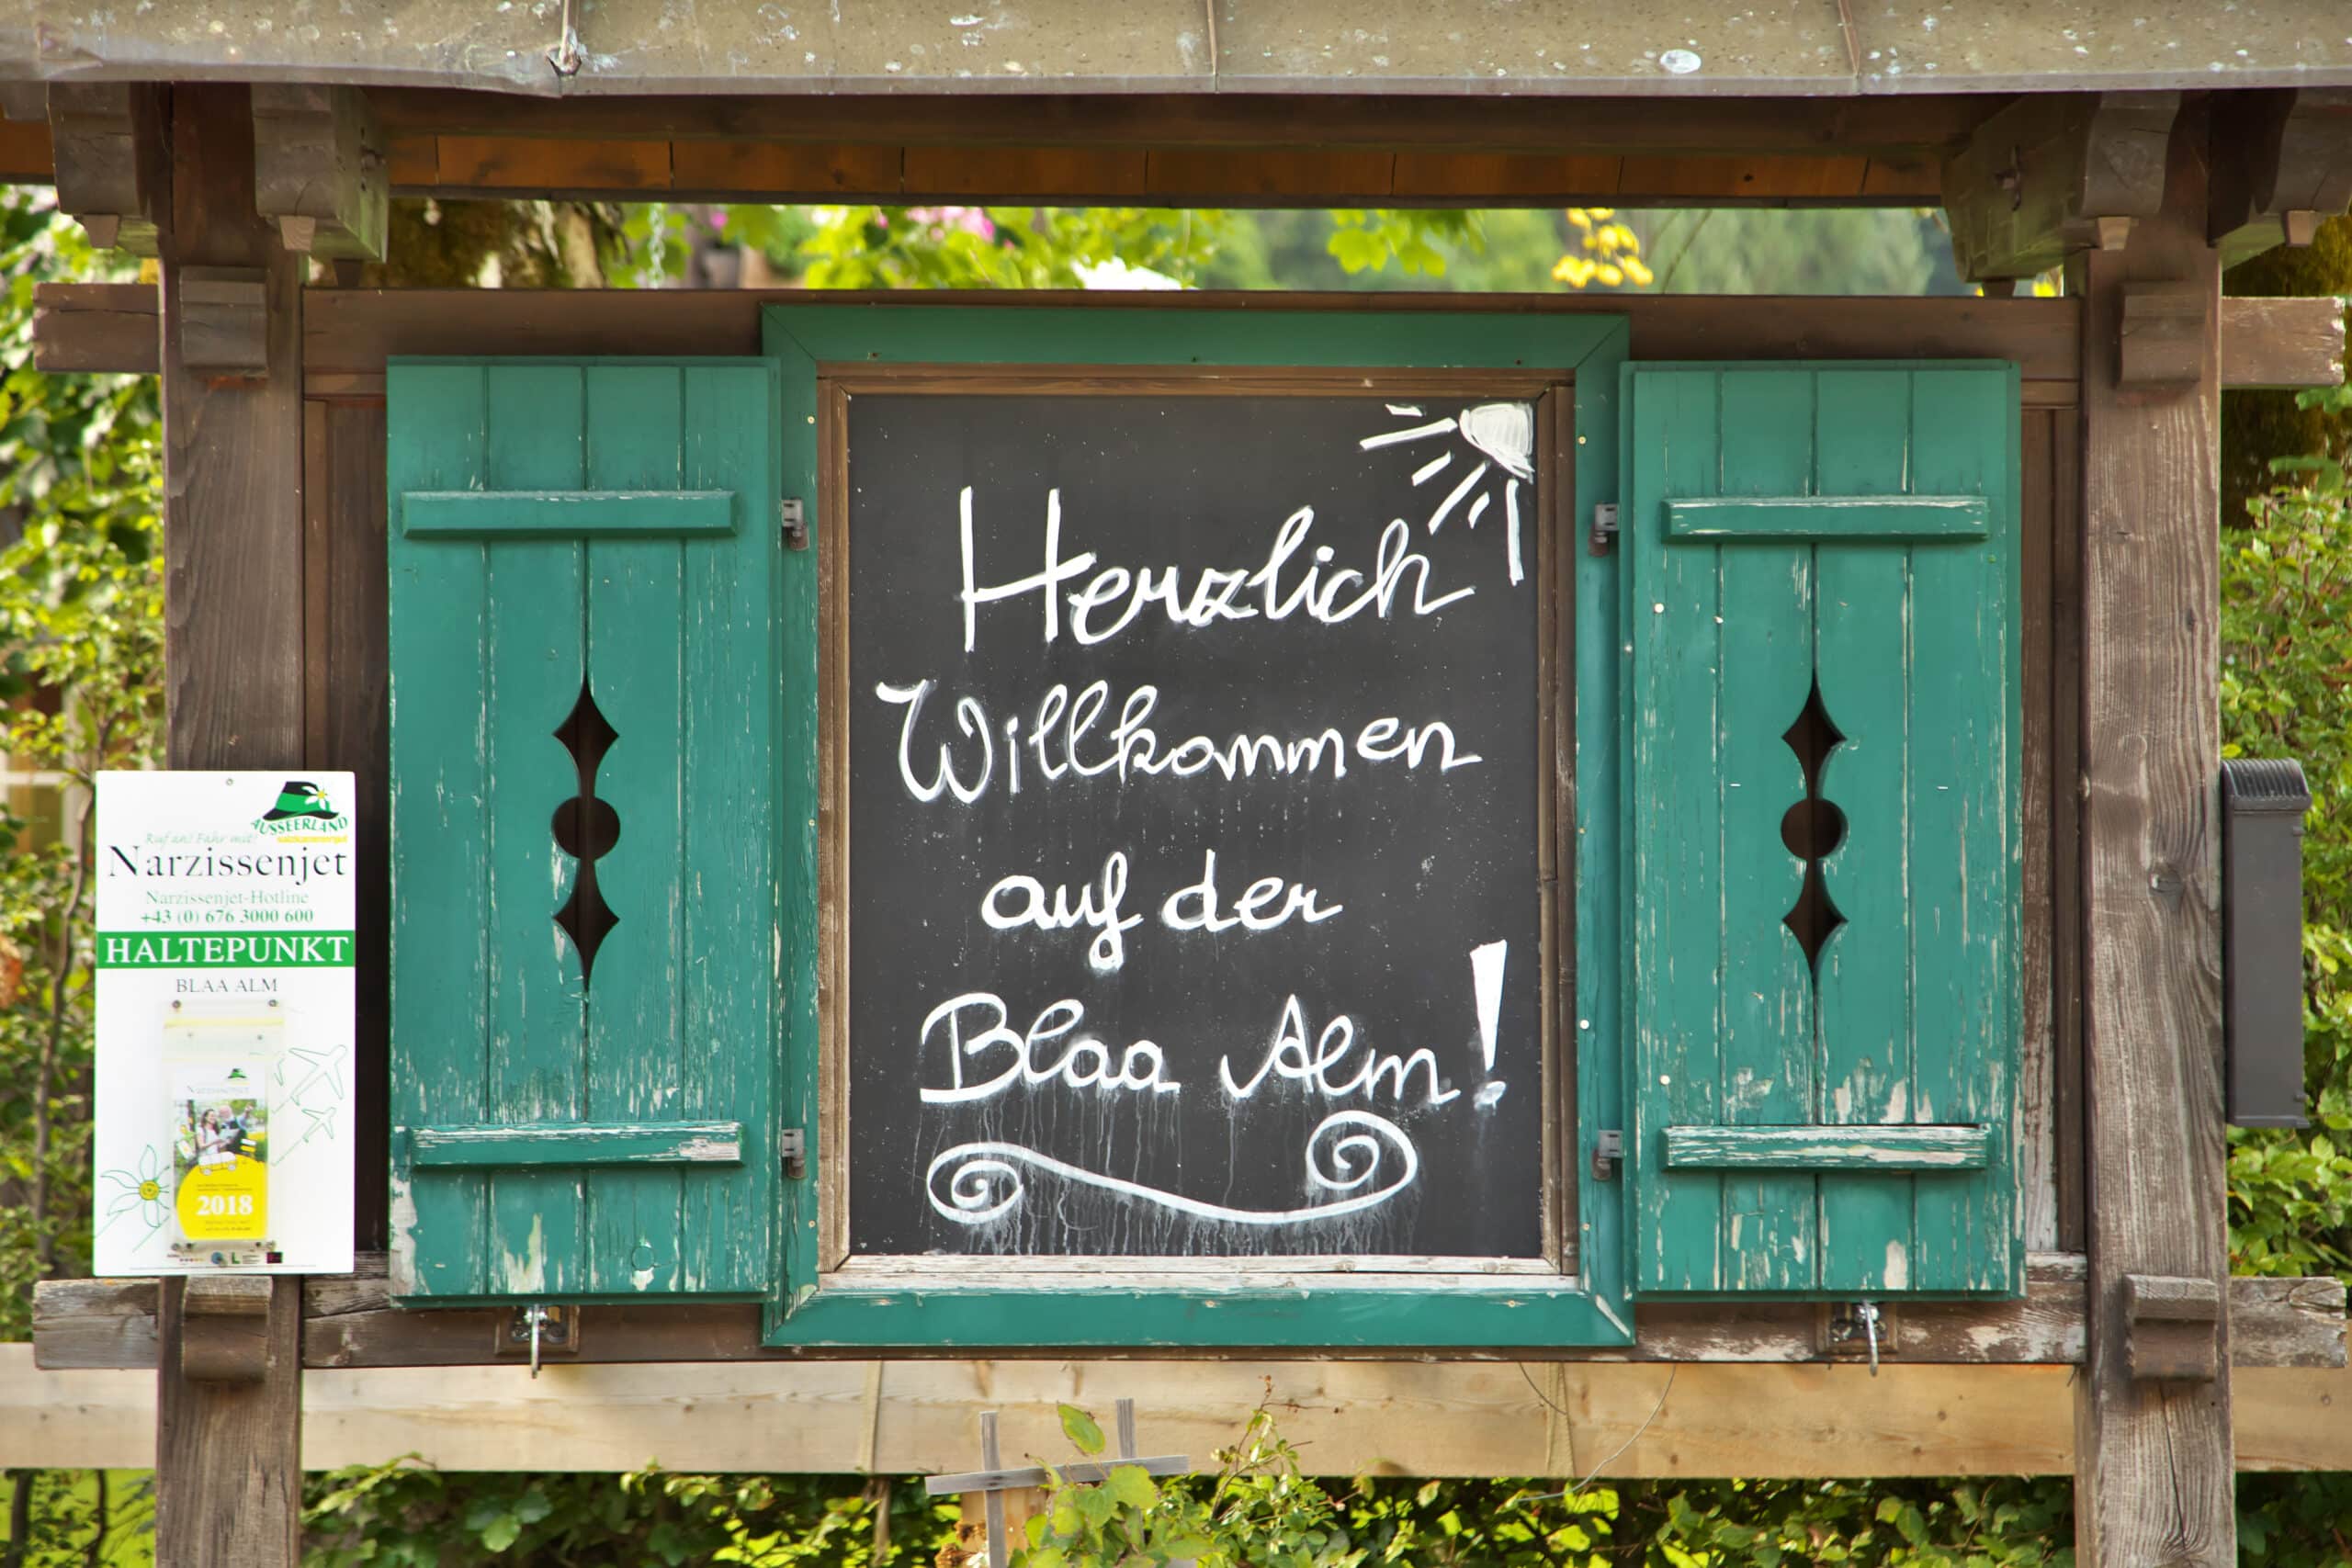 AUSSEERLAND
Ruf an! Fahr mit!
Narzissenjet
Narzissenjet-Hotline
+43 (0) 676 3000 600
HALTEPUNKT
BLAA ALM
Narzissenjet
2018
Herzlich
Willkommen
auf der
Blaa Alm!